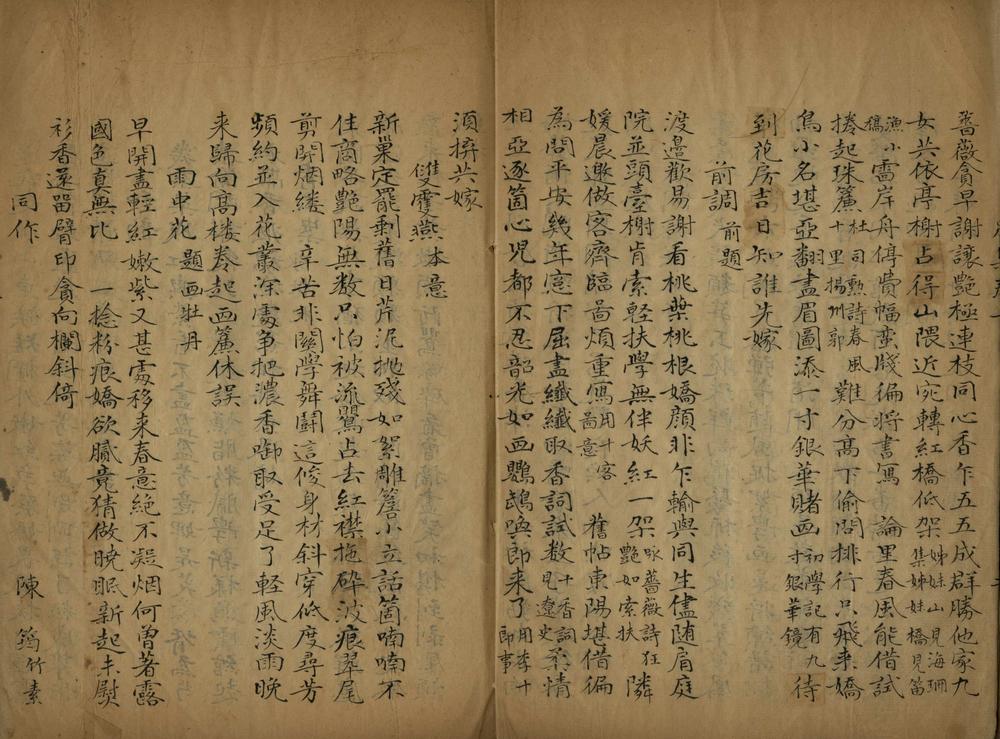 薔薇貪早謝讓艷極連枝同心香乍五五成群勝他家九
女共依亭榭占得山隈近宛轉紅橋低架姊妹山見海珊集姊妹橋見笛
漁稿小雷岸舟停費幅蠻牋徧將書寫 論里春風能借試
捲起珠簾杜司勲詩春風十里揚州郭難分高下偷問排行只飛来嬌
鳥小名堪亞翻盡眉圖添一寸銀華賭画初學記有九寸銀華鏡待
到花房吉日知誰先嫁
前調 前題
渡邉歡易謝看桃葉桃根嬌顔非乍輸與同生儘随肩庭
院並頭臺榭肯索輕扶學無伴妖紅一架咏薔薇詩狂艶如索扶隣
媛晨邀做客齊臨畵煩重寫用十客畵意 舊帖東陽堪借徧
為問平安幾年窓下屈盡纖纖取香詞試数十香詞見遼史柔情
相亞逐箇心兒都不忍韶光如画鸚鵡喚郎来了用李十郎事
須擠共嫁
雙雙燕 本意
新巢定罷剩舊日芹泥抛殘如絮雕簷小立話箇喃喃不
住商略艷陽無数只怕被流鶯占去紅襟拖碎波痕翠尾
剪開烟縷 辛苦非關學舞鬪這俊身材斜穿低度尋芳
頻約並入花叢深處争把濃香啣取受足了輕風淡雨晚
来歸向髙楼養起画簾休誤
雨中花 題画牡丹
早開盡輕紅嫩紫又甚處移来春意絶不凝烟何曾著露
國色真無比 一捻粉痕嬌欲膩竟猜做曉眠新起未熨
衫香還留臂印貪向欄斜倚
同作 陳筠竹素